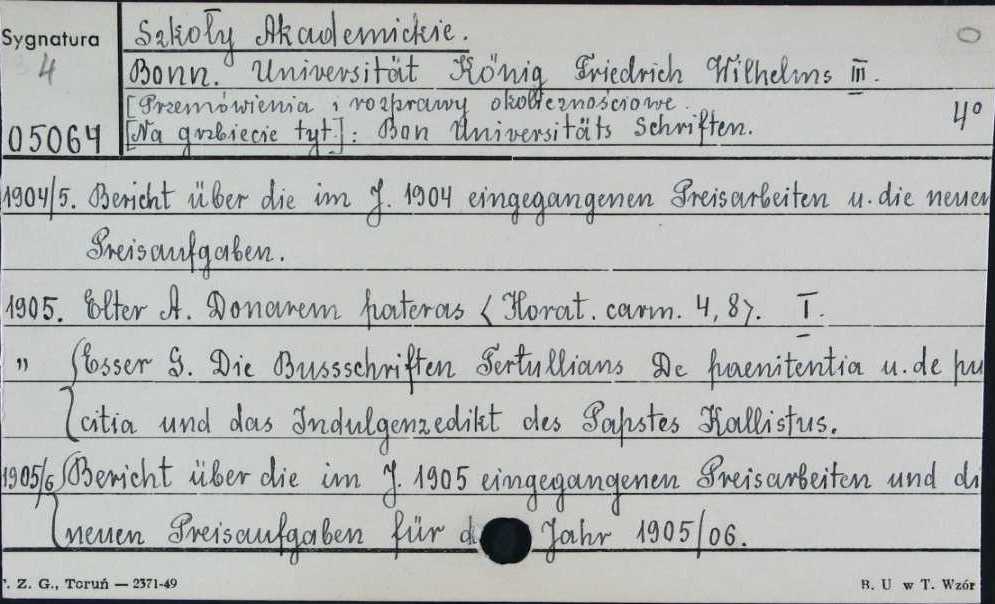 Sygnatura
4
05064
Szkoły Akademickie. 0
Bonn. Universität König Friedrich Wilhelms III.
[Przemówienia i rozprawy okolicznościowe.
[Na grzbiecie tyt.]: Bon Universitäts Schriften. 4°
1904/5. Bericht über die im J. 1904 eingegangenen Preisarbeiten u. die neuen
Preisaufgaben.
1905. Elter A. Donarem pateras <Horat. carm. 4, 8>. I.
" Esser G. Die Bussschriften Tertullians De paenitentia u. de pu
citia und das Indulgenzedikt des Papstes Kallistus.
1905/6 Bericht über die im J. 1905 eingegangenen Preisarbeiten und di
neuen Preisaufgaben für d Jahr 1905/06.
. Z. G., Toruń — 2371-49
B. U w T. Wzór